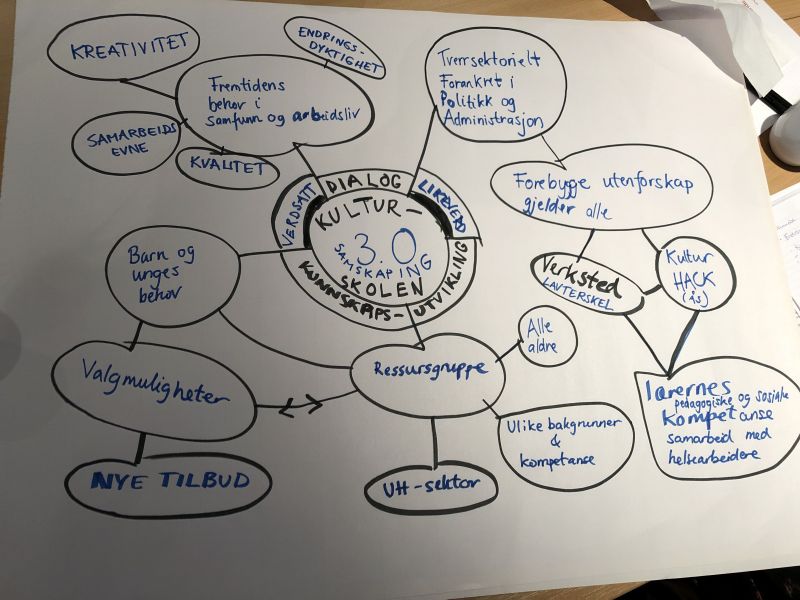 KREATIVITET
ENDRINGS-
DYKTIGHET
Fremtidens
behov i
samfunn og arbeidsliv
SAMARBEIDS
EVNE
KVALITET
Tverrsektorielt
Forankret i
Politikk og
Administrasjon
Forebygge utenforskap
gjelder alle
VERDSATT
DIALOG
LIKEVERD
KULTUR-
3.0
SAMSKAPING
SKOLEN
KUNNSKAPS-
UTVIKLING
Barn og
unges
behov
Verksted
LAVTERSKEL
Kultur
HACK
(ås)
Valgmuligheter
Ressursgruppe
Alle
aldre
lærernes
pedagogiske og sosiale
kompetanse
samarbeid med
helsearbeidere
Ulike bakgrunner
&
kompetanse
NYE TILBUD
UH-sektor